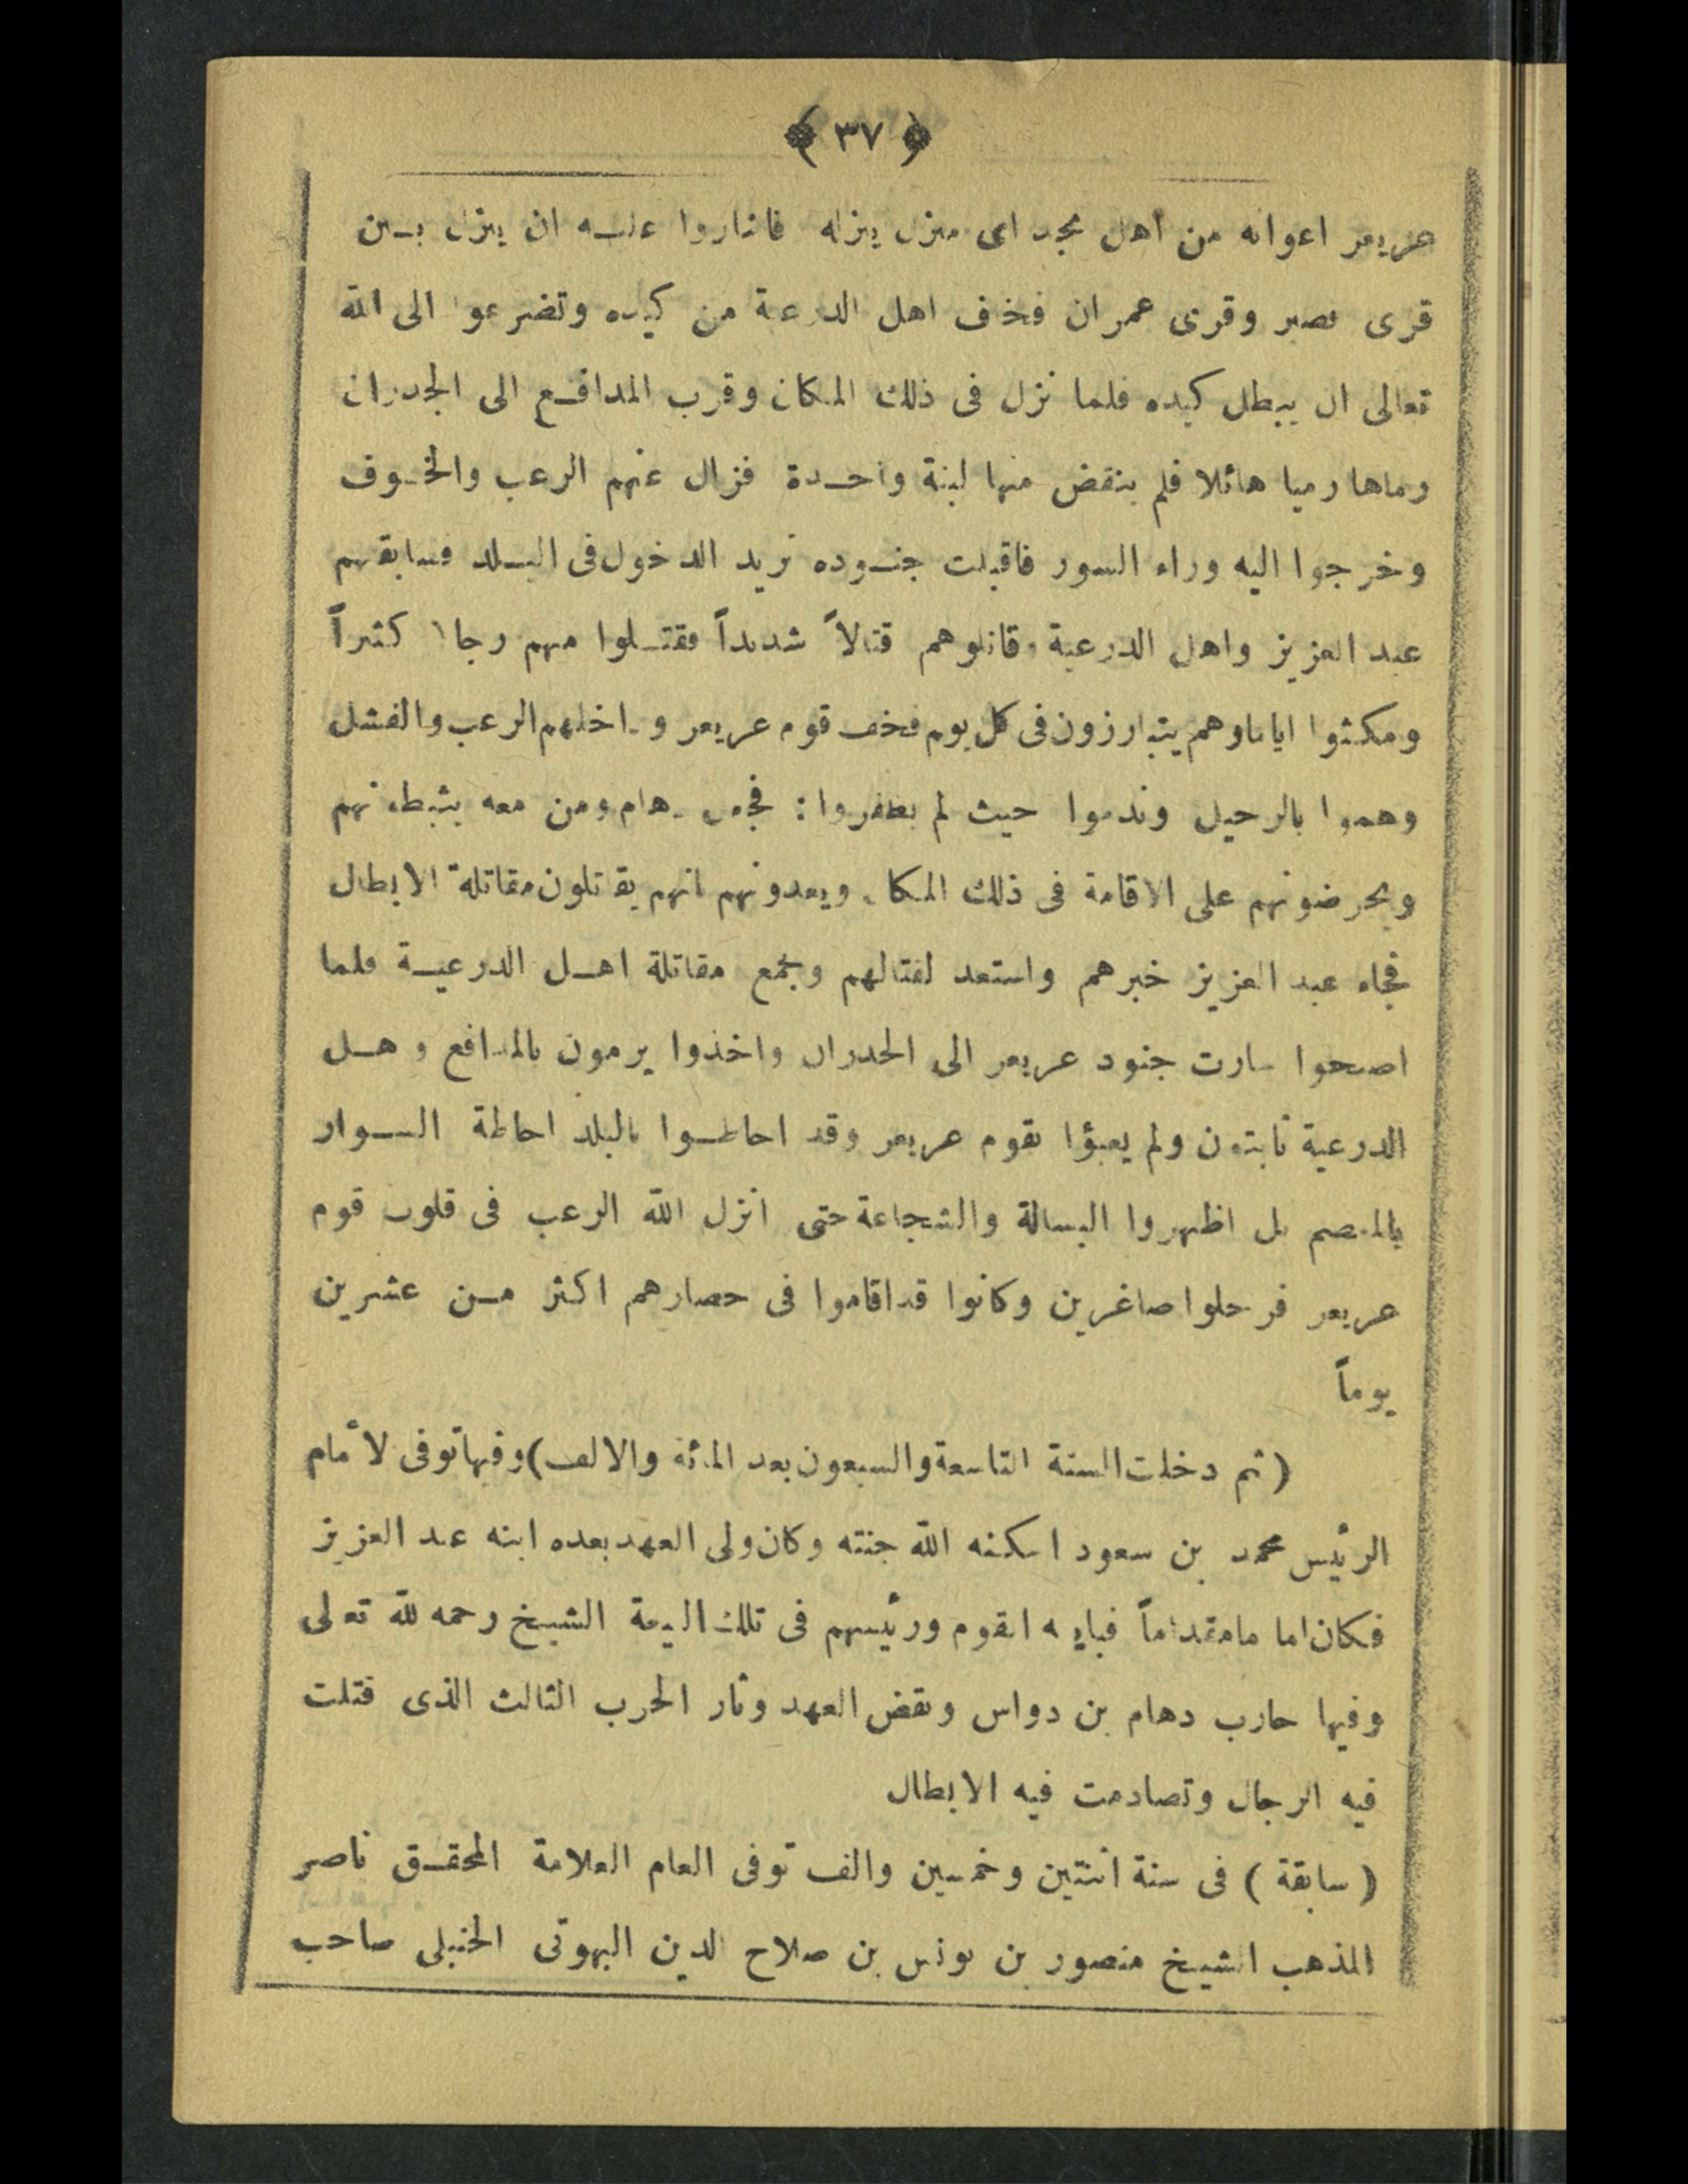 ﴿ ٣٧ ﴾
عريعر اعوانه من أهل نجد اى منزل ينزله فاشاروا عليه ان ينزل بين
قرى نصير وقرى عمران فخاف اهل الدرعية من كيده وتضرعوا الى الله
تعالى ان يبطل كيده فلما نزل فى ذلك المكان وقرب المدافع الى الجدران
رماها رميا هائلا فلم ينقض منها لبنة واحدة فزال عنهم الرعب والخوف
وخرجوا اليه وراء السور فاقبلت جنوده تريد الدخول فى البلد فسابقهم
عبد العزيز واهل الدرعية وقاتلوهم قتالاً شديداً فقتلوا منهم رجالا كثيراً
ومكثوا اياما وهم يتبارزون فى كل يوم فخاف قوم عريعر وداخلهم الرعب والفشل
وهموا بالرحيل وندموا حيث لم يظفروا : فجعل دهام ومن معه يثبطونهم
ويحرضونهم على الاقامة فى ذلك المكان ويعدونهم انهم يقاتلون مقاتلة الابطال
فجاء عبد العزيز خبرهم واستعد لقتالهم وجمع مقاتلة اهل الدرعية فلما
اصبحوا سارت جنود عريعر الى الجدران واخذوا يرمون بالمدافع واهل
الدرعية ثابتون ولم يعبؤا بقوم عريعر وقد احاطوا بالبلد احاطة السوار
بالمعصم بل اظهروا البسالة والشجاعة حتى انزل الله الرعب فى قلوب قوم
عريعر فرحلوا صاغرين وكانوا قد اقاموا فى حصارهم اكثر من عشرين
يوماً
(ثم دخلت السنة التاسعة والسبعون بعد المائة والالف) وفيها توفى الأمام
الرئيس محمد بن سعود اسكنه الله جنته وكان ولى العهد بعده ابنه عبد العزيز
فكان اماما مقداماً فبايعه القوم ورئيسهم فى تلك البيعة الشيخ رحمه الله تعالى
وفيها حارب دهام بن دواس ونقض العهد وثار الحرب الثالث الذى قتلت
فيه الرجال وتصادمت فيه الابطال
( سابقة ) فى سنة اثنتين وخمسين والف توفى العام العلامة المحقق ناصر
المذهب الشيخ منصور بن يونس بن صلاح الدين البهوتى الحنبلى صاحب